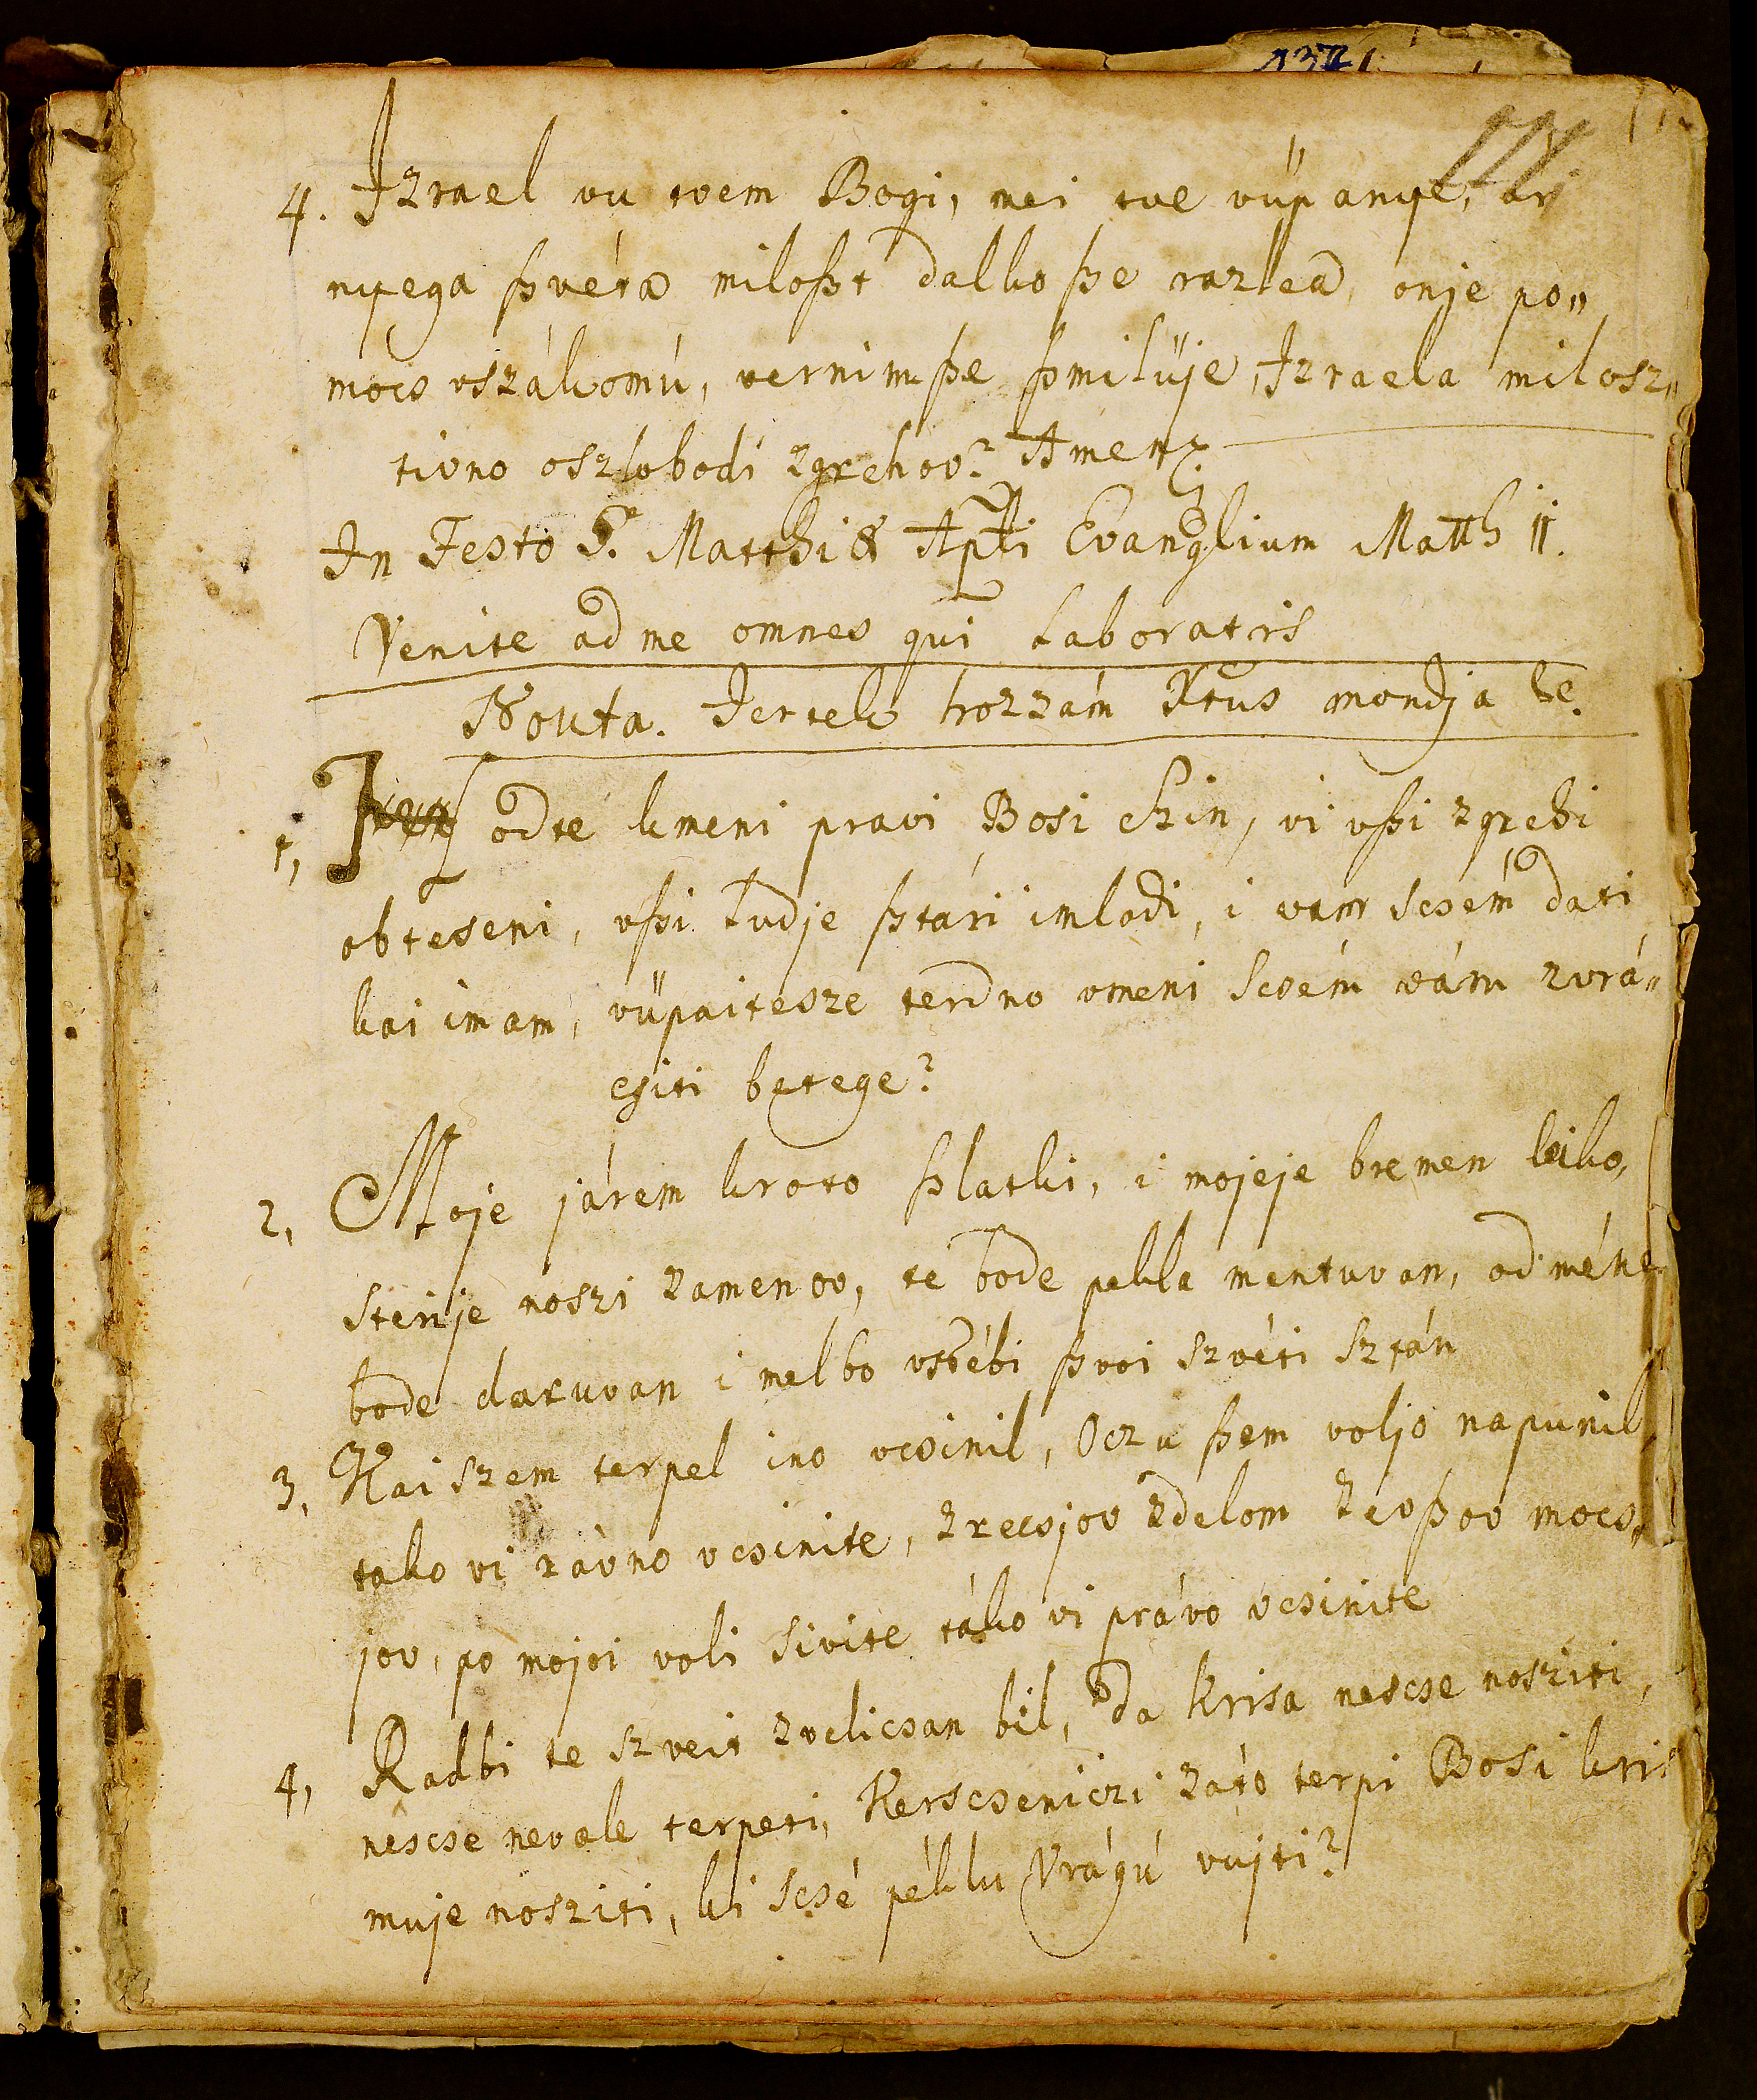 4. Izrael vu tvem Bogi, mei tve vüpanye, ar
nyega ßvéta miloßt dalko ße razleá, onje po„
mócs vszákomú, vernim ße ßmilüje, Izraela milosz„
tivno oszlobodi zgrehov? Amen
In Festo S. Matthiæ Apli Evanglium Matth 11.
Venite ad me omnes qui laboratis
Nouta. Jertek hozzám Xtus mondja be.
1, odte kmeni pravi Bosi Szin, vi vßi zgrehi
obteseni, vßi ludje ßtári imlodi, i vam scsém dati
kai imam, vüpaitesze terdno vmeni scsém vám zvrá„
csiti betege?
2, Moje járem kroto ßlatki, i mojeje bremen leiko,
sterije noszi zamenov, te bode pekla mentuvan, od méne
bode daruvan i mel bo vsébi ßvoi szvéti sztán
3, Kai szem terpel ino vcsinil, Ocza ßem voljo napunil
tako vi rávno vcsinite, zrecsjov zdelom zevßov mocs„
jov, po mojoi voli sivite táko vi právo vcsinite
4, Radbi te szveit zvelicsan bil, da krisa nescse nosziti,
nescse nevole terpeti, Kerscseniczi záto terpi Bosi kris
muje nosziti, ki scsé péklu Vrágú vujti?